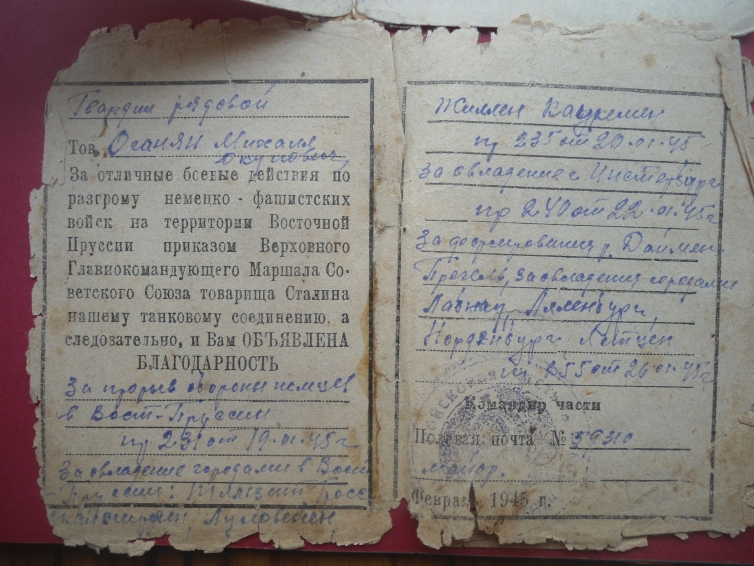 Гвардии рядовой
Тов. Оганян Михаля
За отличные боевые действия по
разгрому немецко - фашистских
войск на территории Восточной
Пруссии приказом Верховного
Главнокомандующего Маршала Со-
ветского Союза товарища Сталина
нашему танковому соединению, а
следовательно, и Вам ОБЪЯВЛЕНА
БЛАГОДАРНОСТЬ
За прорыв обороны немцев
в Вост-Пруссии
пр 231 от 19.01.45 г
За овладение городами в Вост
Пруссии: Тильзит Гросс
Жиллен Каукемен
пр 235 от 20.01.45
За овладение г Инстербург
пр 240 от 22.01.45г
За форсирования р. Дайме
Прегель, за овладения городами
Лабиау,
Норденбург, Летцен
пр 255 от 26.01.45г
Командир части
Полевая почта №
майор.
Февраль 1945 г.